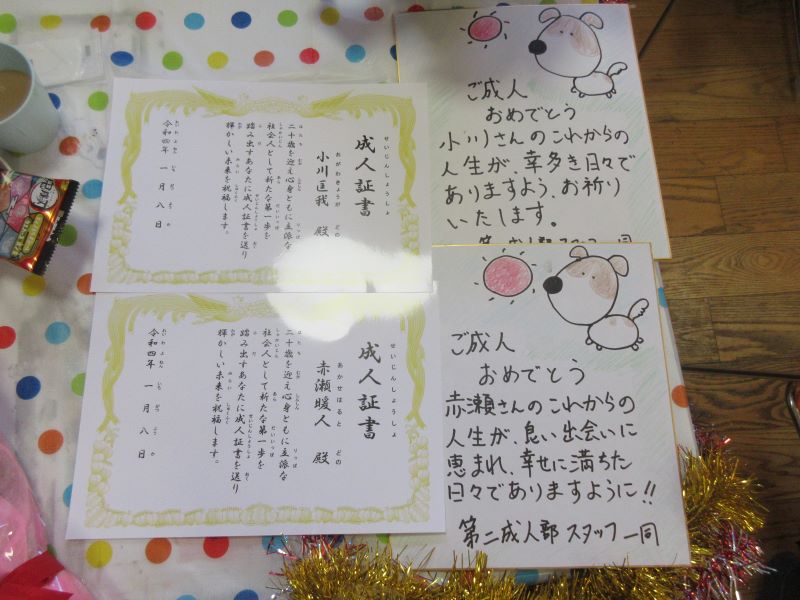 せいじんしょうしょ
成人証書
おがわきょうが どの
小川匡我 殿
二十歳を迎え心身ともに立派な
社会人として新たな第一歩を
踏み出すあなたに成人証書を送り
輝かしい未来を祝福します。
令和四年 一月八日
ご成人
おめでとう
小川さんのこれからの
人生が、幸多き日々で
ありますよう、お祈り
いたします。
第二成人部スタッフ一同
せいじんしょうしょ
成人証書
あかせはると どの
赤瀬暖人 殿
二十歳を迎え心身ともに立派な
社会人として新たな第一歩を
踏み出すあなたに成人証書を送り
輝かしい未来を祝福します。
令和四年 一月八日
ご成人
おめでとう
赤瀬さんのこれからの
人生が、良い出会いに
恵まれ、幸せに満ちた
日々でありますように!!
第二成人部スタッフ一同